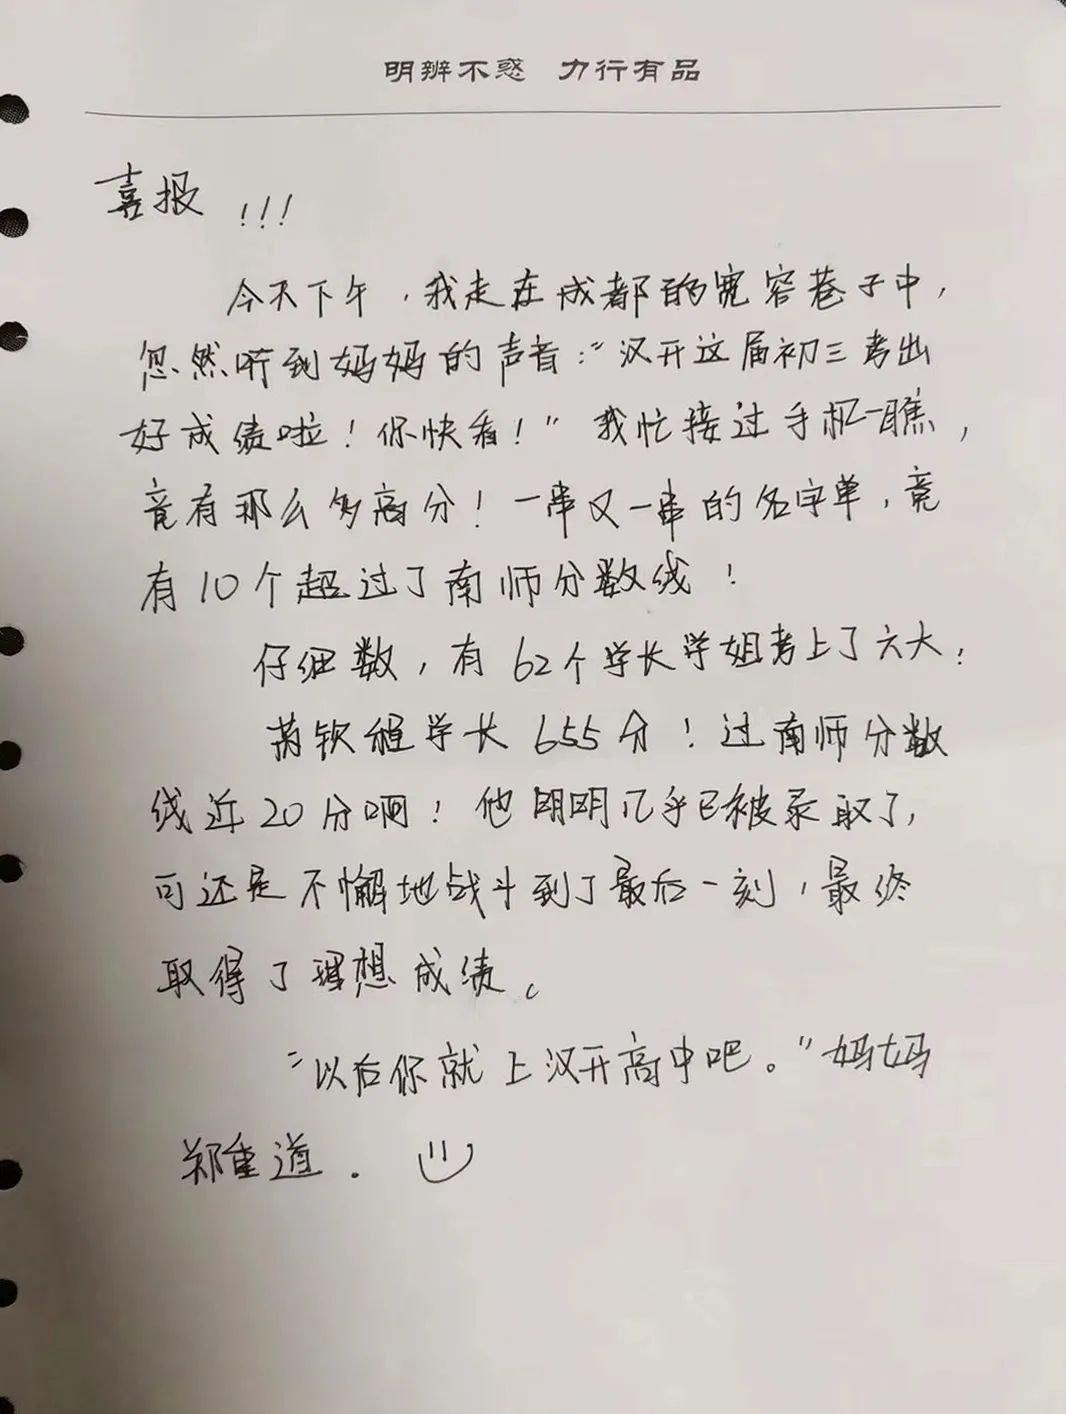 明辨不惑 力行有品
喜报 !!!
今天下午，我走在成都的宽容巷子中，
忽然听到妈妈的声音：“汉开这届初三考出
好成绩啦！你快看！”我忙接过手机一瞧，
竟有那么多高分！一串又一串的名字单，竟
有10个超过了南师分数线！
仔细数，有62个学长学姐考上了六大；
钦 学长655分！过南师分数
线近20分啊！他明明几乎已被录取了，
可还是不懈地战斗到了最后一刻，最终
取得了理想成绩。
“以后你就上汉开高中吧。”妈妈
郑重道.